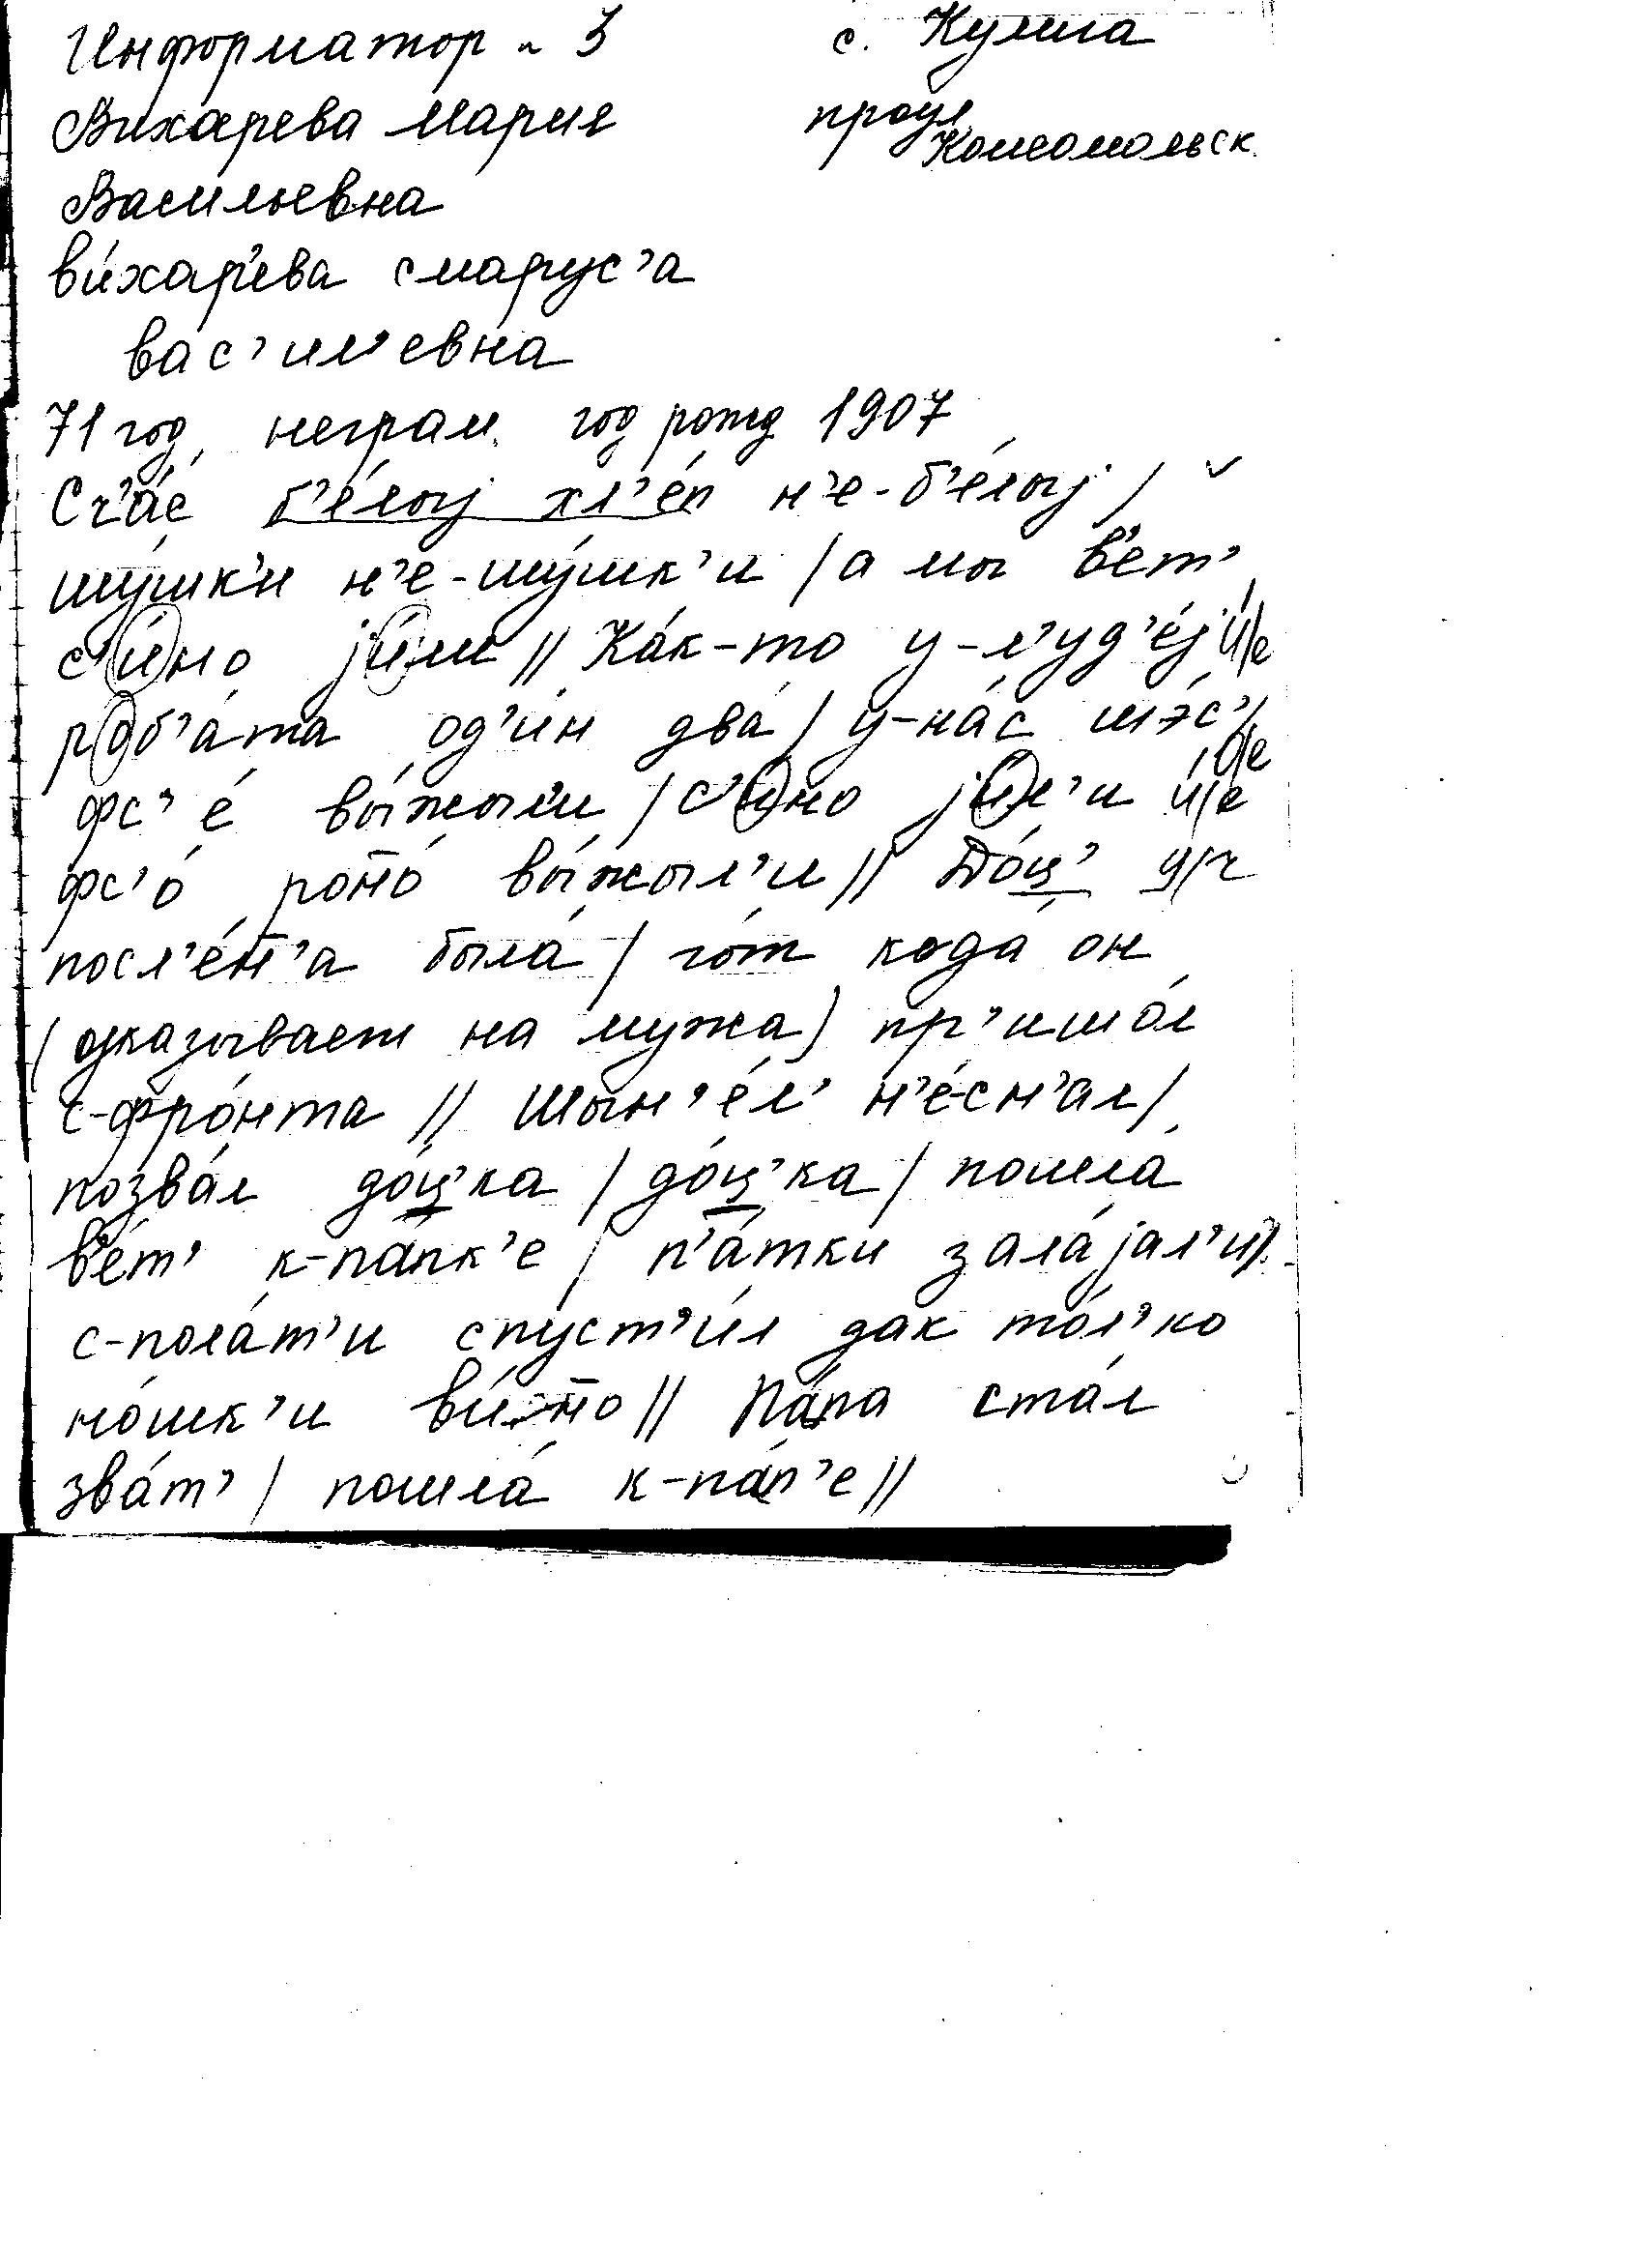 Информатор - 3 с. Кулига
Вихарева Мария проул. Комсомольск.
Васильевна
ви́хар'ева с марус'а
вас'ил'евна
71 год, неграм. год рожд 1907
Сч'а́с б'е́лыј хл'е́п н'е-б'е́лыј /
шу́шк'и н'е-шу́шк'и / а мы в'ет'
с'и́но јӣ́ли // Ка́к-то у-л'уд'е́ј и́/е
роб'а́та од'и́н два́ / у-на́с шэ́с'/
фс'е́ вы́жыли / с'и́но ји́л'и и́/е о/е
фс'о́ ро̄но́ вы́жыл'и // До́ц' ц/ч
посл'е́н'а была́ / го́т кода он
(указывает на мужа) пр'ишо́л
с-фро́нта // Шын'е́л' н'е́-сн'ал /
позва́л до́ц'ка / до́ц'ка / пошла́
в'е́т' к-па́пк'е / п'а́тки зала́јал'и).
с-пола́т'и спуст'и́л дак то́л'ко
но́шк'и ви́но // Па́па ста́л
зва́т' / пошла́ к-па́п'е //